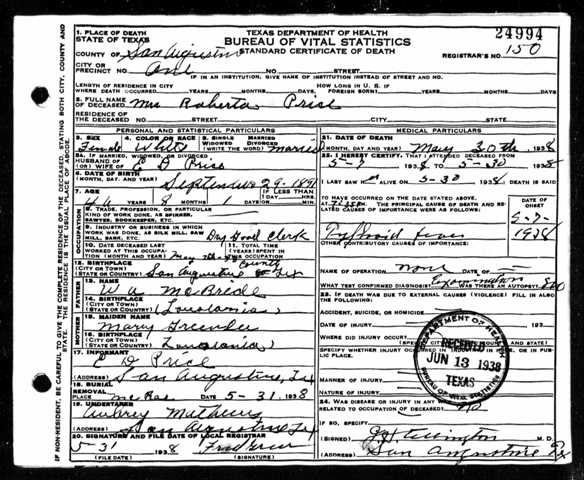 1. PLACE OF DEATH
STATE OF TEXAS
TEXAS DEPARTMENT OF HEALTH
BUREAU OF VITAL STATISTICS
STANDARD CERTIFICATE OF DEATH
24994
COUNTY OF San Augustine
REGISTRAR'S NO. 150
CITY OR
PRECINCT NO. One NO. STREET
IF IN AN INSTITUTION, GIVE NAME OF INSTITUTION INSTEAD OF STREET AND NO.
LENGTH OF RESIDENCE
WHERE DEATH OCCURRED YEARS MONTHS DAYS
HOW LONG IN U. S. IF
FOREIGN BORN? YEARS MONTHS DAYS
2. FULL NAME
OF DECEASED Mrs Roberta Price
RESIDENCE OF
THE DECEASED NO. STREET CITY STATE
PERSONAL AND STATISTICAL PARTICULARS
3. SEX Female
4. COLOR OR RACE White
5. SINGLE MARRIED WIDOWED DIVORCED (WRITE THE WORD) married
5A. IF MARRIED, WIDOWED OR DIVORCED
HUSBAND OF
(OR) WIFE OF E D Price
6. DATE OF BIRTH
(MONTH, DAY, AND YEAR) September 29-1891
7. AGE
YEARS 8 MONTHS 1 DAYS
IF LESS THAN 1 DAY
HRS. MIN.
OCCUPATION
8. TRADE, PROFESSION, OR PARTICULAR
KIND OF WORK DONE, AS SPINNER,
SAWYER, BOOKKEEPER, ETC.
9. INDUSTRY OR BUSINESS IN WHICH
WORK WAS DONE, AS SILK MILL, SAW
MILL, BANK, ETC. Dry Good Clerk
10. DATE DECEASED LAST
WORKED AT THIS OCCUPATION (MONTH AND YEAR)
11. TOTAL TIME
(YEARS) SPENT IN
THIS OCCUPATION
12. BIRTHPLACE
(CITY OR TOWN)
(STATE OR COUNTRY) San Augustine County Tex
FATHER
13. NAME W A McBride
14. BIRTHPLACE
(CITY OR TOWN)
(STATE OR COUNTRY) Louisiania
MOTHER
15. MAIDEN NAME Mary
16. BIRTHPLACE
(CITY OR TOWN)
(STATE OR COUNTRY) Louisiania
17. INFORMANT E D Price
(ADDRESS) San Augustine, Tex
18. BURIAL
REMOVAL
PLACE McRae DATE 5-31 1938
19. UNDERTAKER Aubrey Mathews
(ADDRESS) San Augustine Tex
20. SIGNATURE AND FILE DATE OF LOCAL REGISTRAR
5-31 1938
(FILE DATE) (SIGNATURE)
MEDICAL PARTICULARS
21. DATE OF DEATH
(MONTH, DAY, AND YEAR) May 30th 1938
22. I HEREBY CERTIFY, THAT I ATTENDED DECEASED
FROM 5-7 1938 TO 5-30 1938
I LAST SAW ALIVE ON 5-30 1938 DEATH IS SAID
TO HAVE OCCURRED ON THE DATE STATED ABOVE, AT
THE PRINCIPAL CAUSE OF DEATH AND RELATED CAUSES OF IMPORTANCE WERE AS FOLLOWS:
DATE OF
ONSET
5-7-
1938
Typhoid fever
OTHER CONTRIBUTORY CAUSES OF IMPORTANCE:
NAME OF OPERATION none DATE OF
WHAT TEST CONFIRMED DIAGNOSIS? Examination WAS THERE AN AUTOPSY? no
23. IF DEATH WAS DUE TO EXTERNAL CAUSES (VIOLENCE) FILL IN ALSO
THE FOLLOWING:
ACCIDENT, SUICIDE, OR HOMICIDE?
DATE OF INJURY 193
WHERE DID INJURY OCCUR?
SPECIFY WHETHER INJURY OCCURRED IN INDUSTRY, HOME, OR IN PUBLIC PLACE.
MANNER OF INJURY
NATURE OF INJURY
24. WAS DISEASE OR INJURY IN ANY WAY
RELATED TO OCCUPATION OF DECEASED? no
IF SO, SPECIFY
(SIGNED) M. D.
(ADDRESS) San Augustine Tex
DEPARTMENT OF HEALTH
RECEIVED
JUN 13 1938
TEXAS
BUREAU OF VITAL STATISTICS